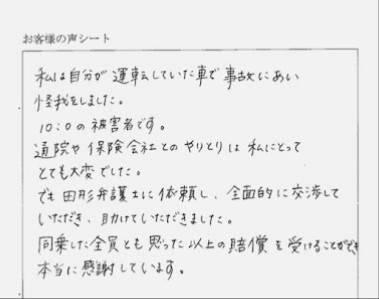 お客様の声シート
私は自分が運転していた車で事故にあい
怪我をしました。
10:0の被害者です。
通院や保険会社とのやりとりは私にとって
とても大変でした。
でも田形弁護士に依頼し、全面的に交渉して
いただき、助けていただきました。
同乗した全員とも思った以上の賠償を受けることができ
本当に感謝しています。